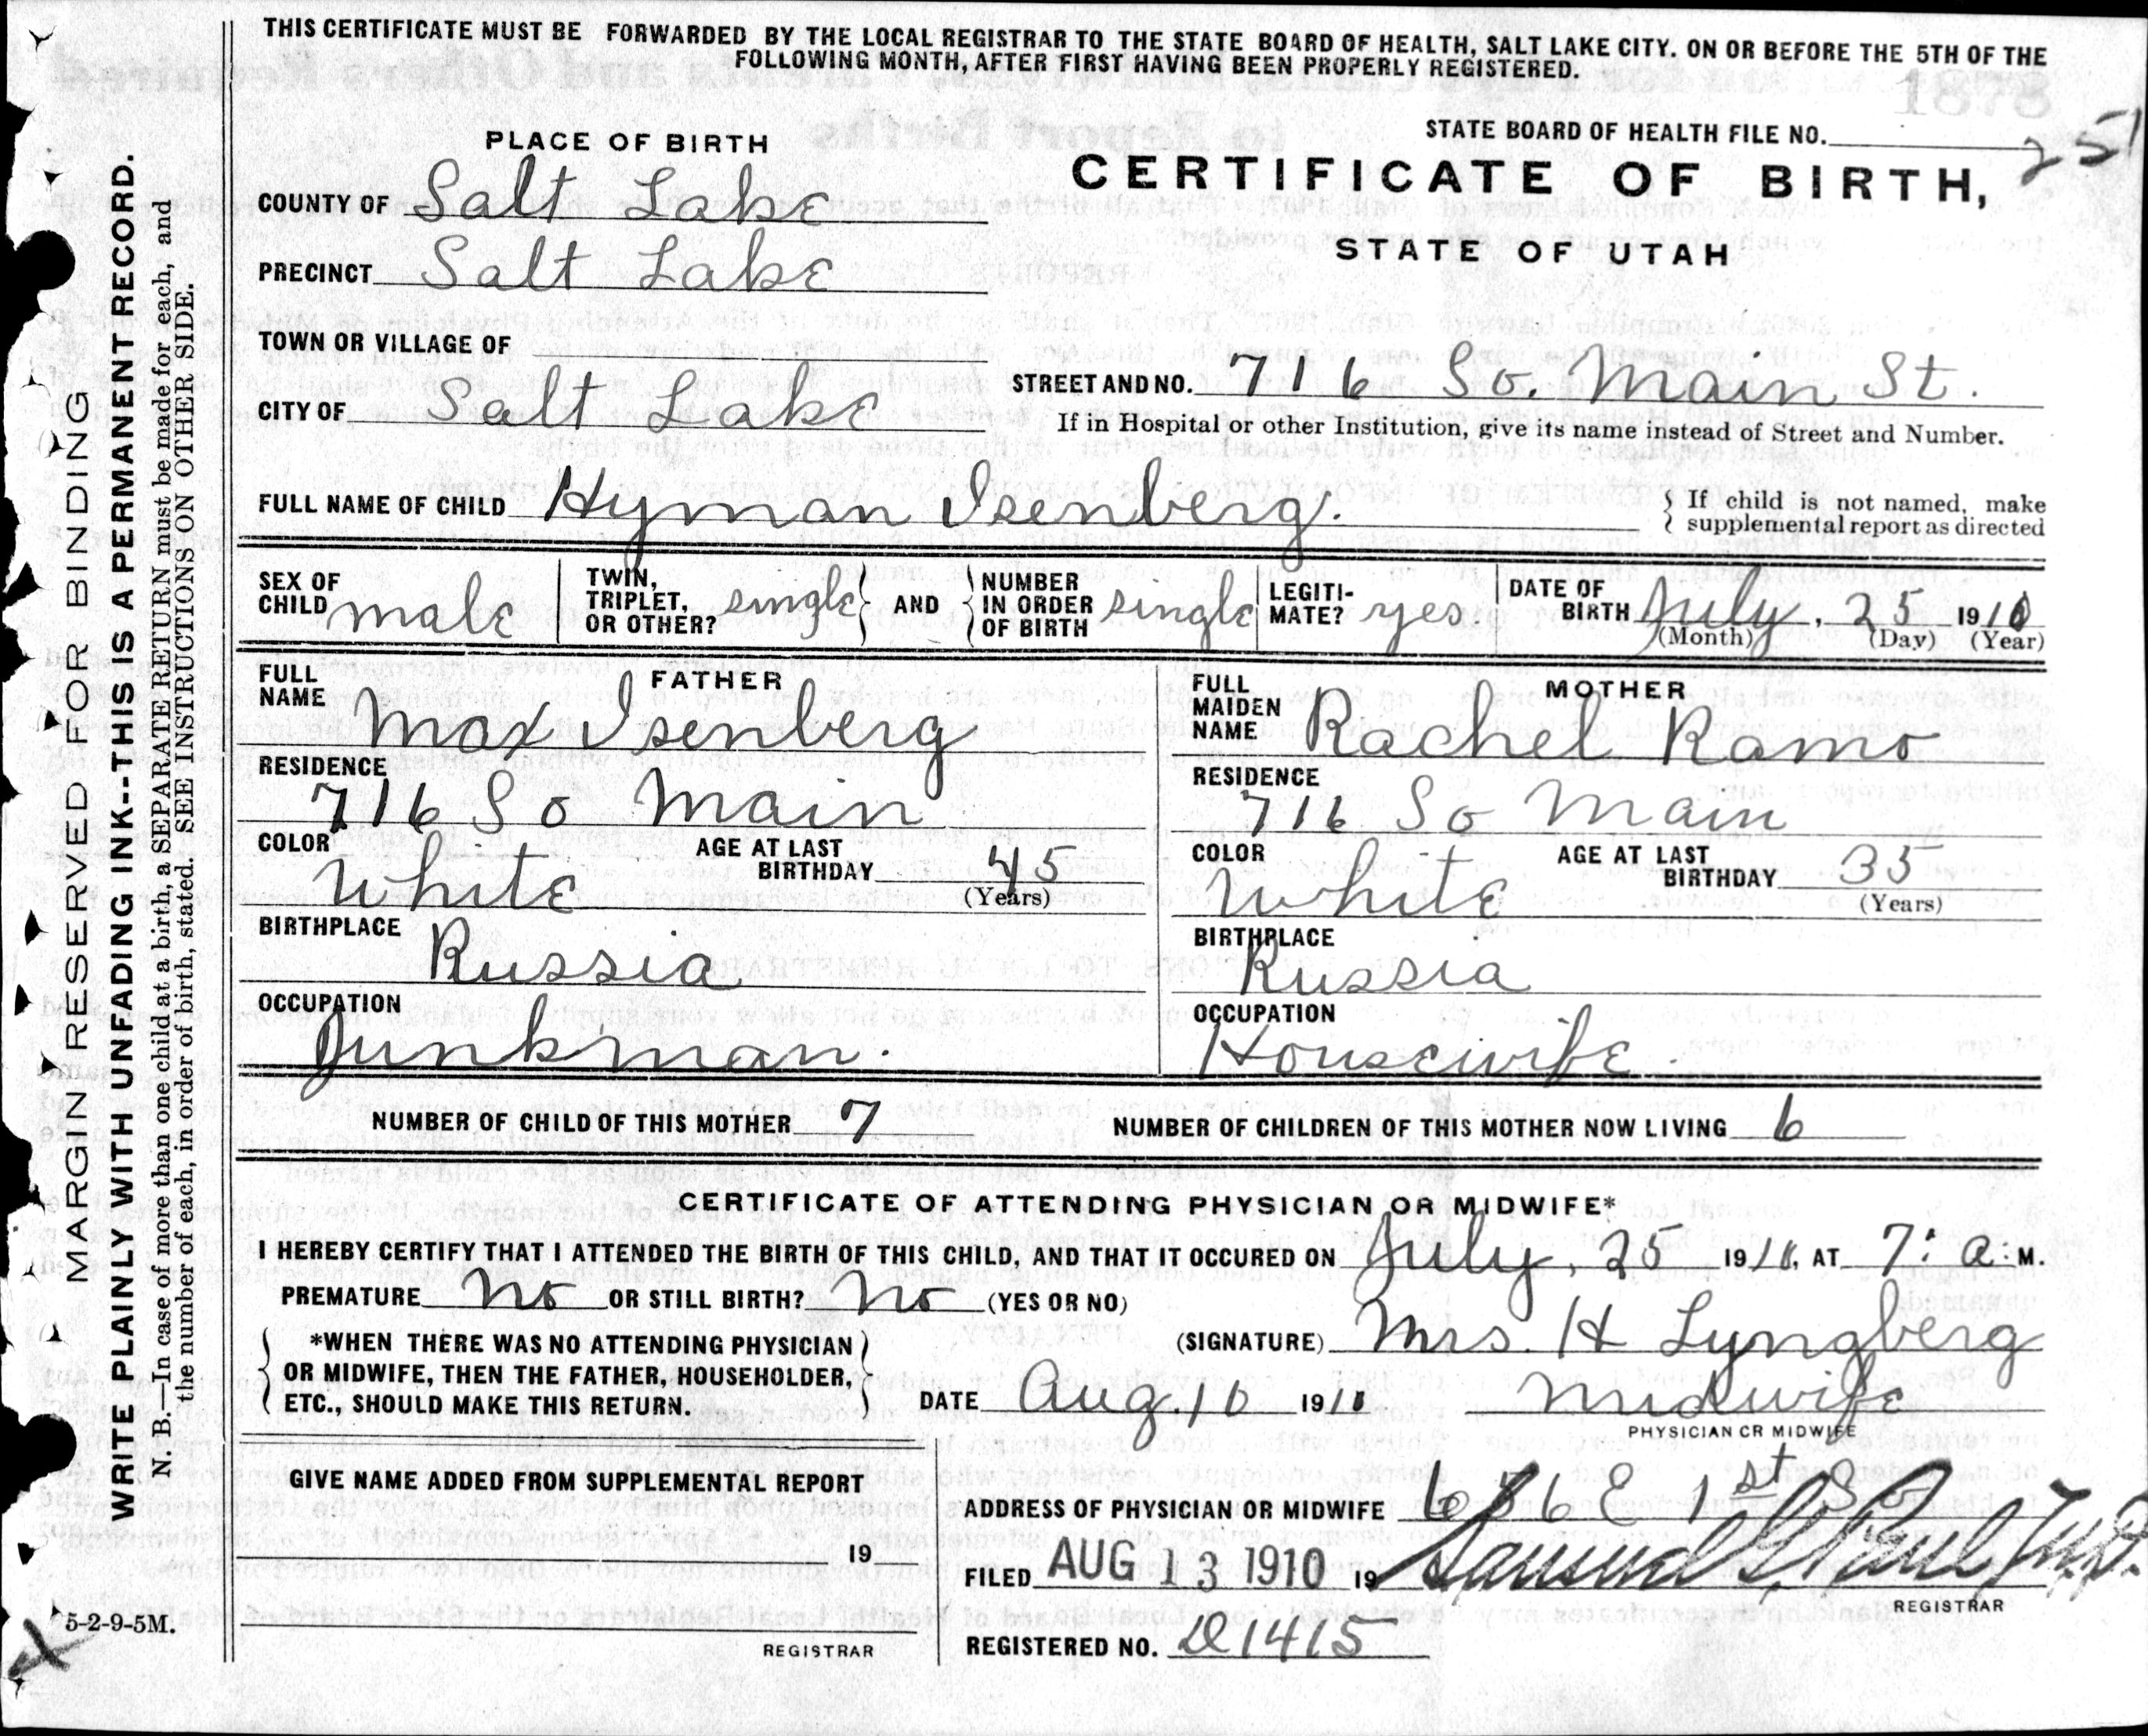 THIS CERTIFICATE MUST BE FORWARDED BY THE LOCAL REGISTRAR TO THE STATE BOARD OF HEALTH, SALT LAKE CITY. ON OR BEFORE THE 5TH OF THE
FOLLOWING MONTH, AFTER FIRST HAVING BEEN PROPERLY REGISTERED.
1878
MARGIN RESERVED FOR BINDING
WRITE PLAINLY WITH UNFADING INK--THIS IS A PERMANENT RECORD.
N. B.—In case of more than one child at a birth, a SEPARATE RETURN must be made for each, and
the number of each, in order of birth, stated. SEE INSTRUCTIONS ON OTHER SIDE.
PLACE OF BIRTH
STATE BOARD OF HEALTH FILE NO. 251
CERTIFICATE OF BIRTH,
STATE OF UTAH
COUNTY OF Salt Lake
PRECINCT Salt Lake
TOWN OR VILLAGE OF
CITY OF Salt Lake
STREET AND NO. 716 So. Main St.
If in Hospital or other Institution, give its name instead of Street and Number.
FULL NAME OF CHILD Hyman Isenberg.
If child is not named, make
supplemental report as directed
SEX OF CHILD male
TWIN, TRIPLET, OR OTHER? single AND NUMBER IN ORDER OF BIRTH single
LEGITIMATE? yes.
DATE OF BIRTH July, 25 1910
(Month) (Day) (Year)
FATHER
FULL NAME Max Isenberg
RESIDENCE
716 So Main
COLOR White
AGE AT LAST BIRTHDAY 45
(Years)
BIRTHPLACE
Russia
OCCUPATION
Junkman.
MOTHER
FULL MAIDEN NAME Rachel Ramo
RESIDENCE
716 So Main
COLOR White
AGE AT LAST BIRTHDAY 35
(Years)
BIRTHPLACE
Russia
OCCUPATION
Housewife.
NUMBER OF CHILD OF THIS MOTHER 7
NUMBER OF CHILDREN OF THIS MOTHER NOW LIVING 6
CERTIFICATE OF ATTENDING PHYSICIAN OR MIDWIFE*
I HEREBY CERTIFY THAT I ATTENDED THE BIRTH OF THIS CHILD, AND THAT IT OCCURED ON July, 25 1910, AT 7: a. M.
PREMATURE No OR STILL BIRTH? No (YES OR NO)
*WHEN THERE WAS NO ATTENDING PHYSICIAN
OR MIDWIFE, THEN THE FATHER, HOUSEHOLDER,
ETC., SHOULD MAKE THIS RETURN.
(SIGNATURE) Mrs. H Lyngberg
DATE Aug 10 1910 Midwife
PHYSICIAN OR MIDWIFE
GIVE NAME ADDED FROM SUPPLEMENTAL REPORT
19
REGISTRAR
ADDRESS OF PHYSICIAN OR MIDWIFE 636 E 1st So
FILED AUG 13 1910 19 Samuel G Paul M.D.
REGISTRAR
REGISTERED NO. D1415
5-2-9-5M.